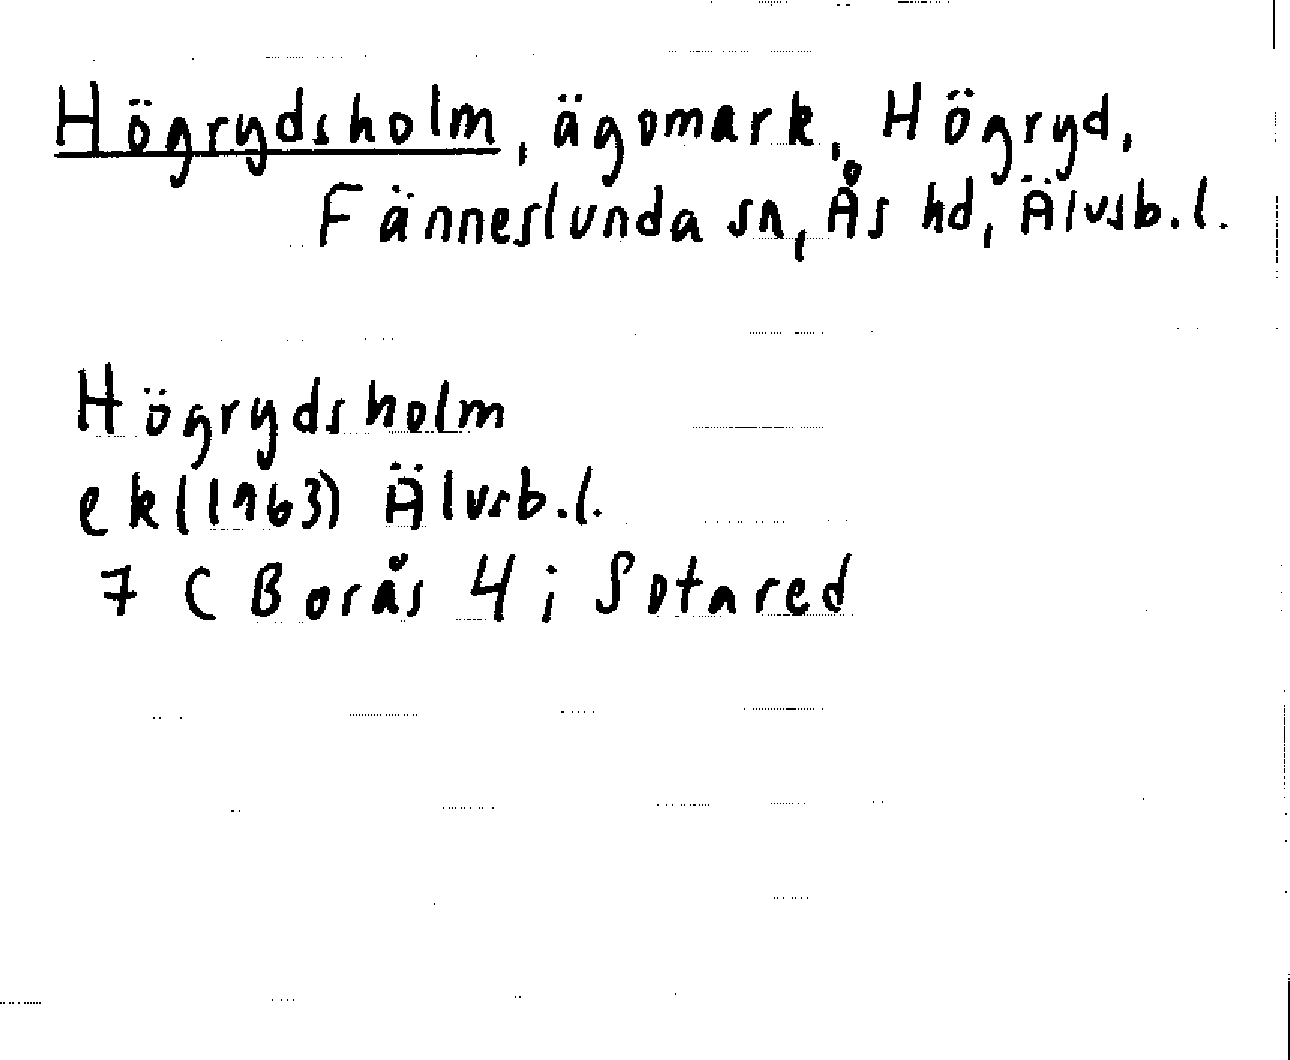 Högrydsholm, ägomark, Högryd,
Fänneslunda sn, Ås hd, Älvsb.l.
Högrydsholm
ek (1963) Älvsb.l.
7 C Borås 4 i Sotared